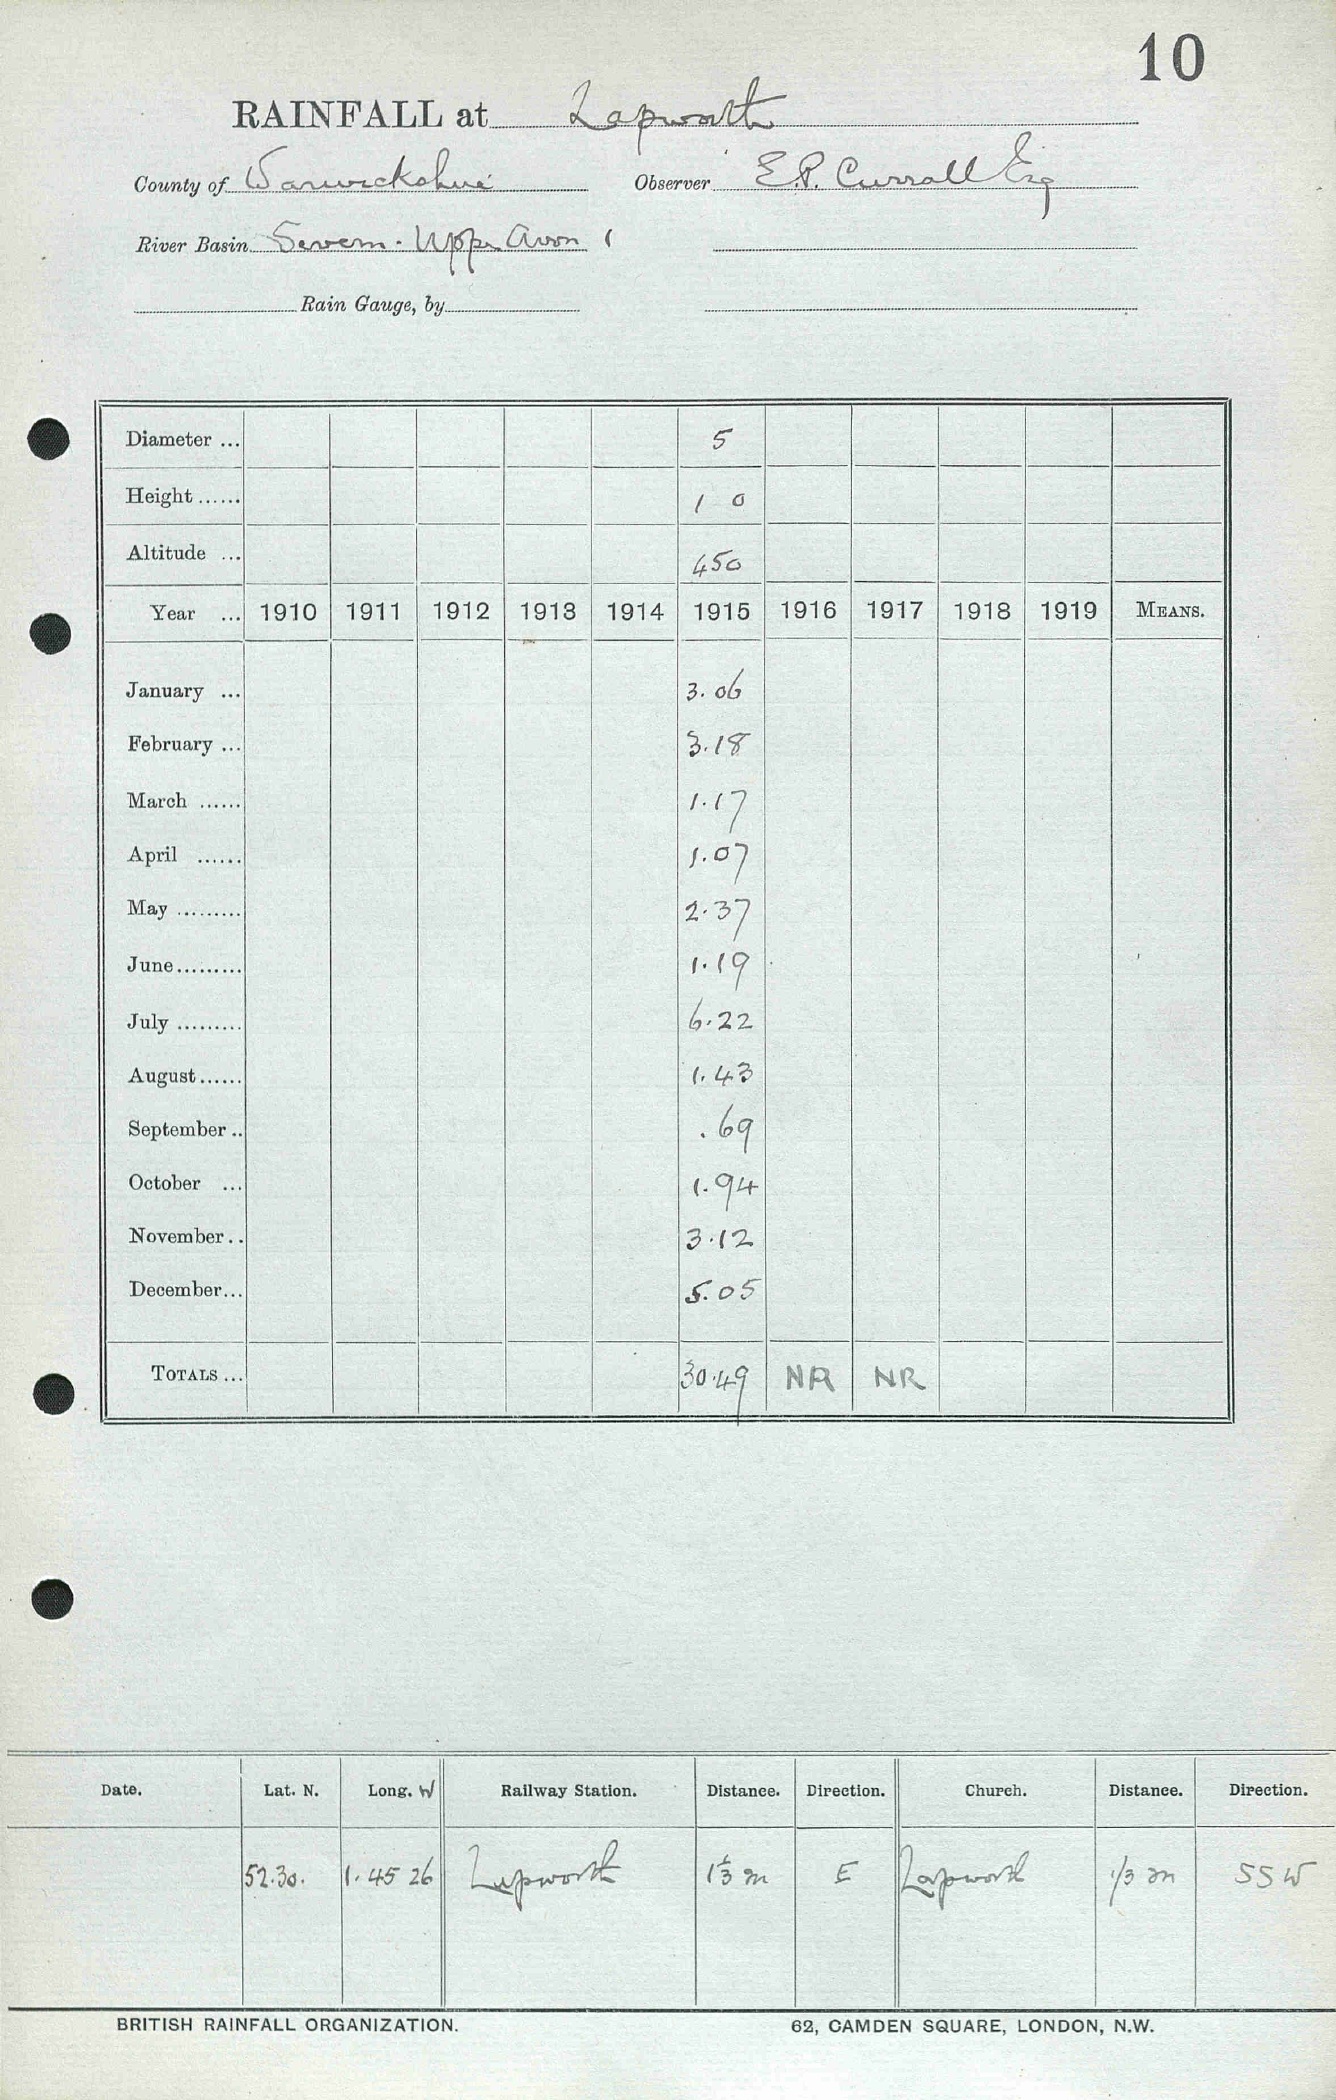 10
RAINFALL at Lapworth
County of Warwickshire Observer E.P. Currall Esq
River Basin Severn - Upper Avon 1
Rain Gauge, by
Diameter ... 5
Height ...... 1 0
Altitude ... 450
Year ... 1910 1911 1912 1913 1914 1915 1916 1917 1918 1919 MEANS.
January ... 3.06
February ... 3.18
March ...... 1.17
April ...... 1.07
May ......... 2.37
June ......... 1.19
July ......... 6.22
August ...... 1.43
September .. .69
October ... 1.94
November .. 3.12
December ... 5.05
TOTALS ... 30.49 NR NR
Date. Lat. N. Long. W Railway Station. Distance. Direction. Church. Distance. Direction.
52.30. 1.45 26 Lapworth 1⅓ m E Lapworth 1/3 m SSW
BRITISH RAINFALL ORGANIZATION. 62, CAMDEN SQUARE, LONDON, N.W.